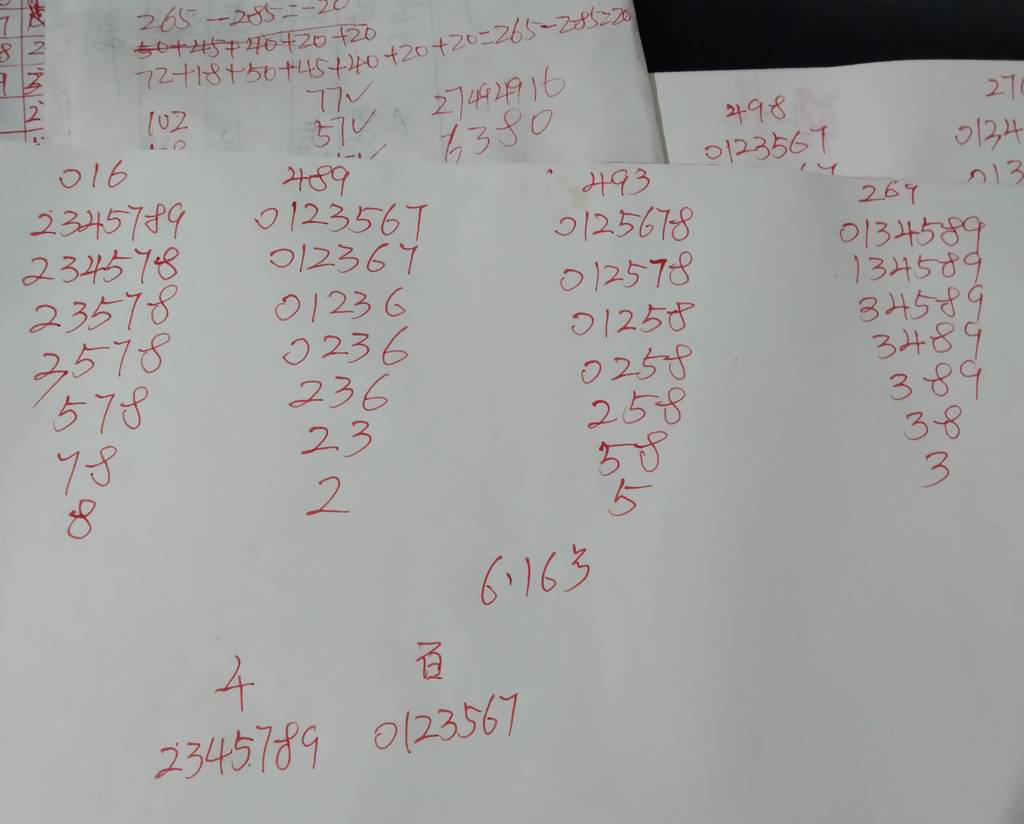 265-285=-20
50+45+40+20+20
72+18+50+45+40+20+20=265-285=20
77✓ 27492916
102 57✓ 6380
498
0123567 0134
016 489 493 269
2345789 0123567 0125678 0134589
234578 012367 012578 134589
23578 01236 01258 34589
2578 0236 0258 3489
578 236 258 389
78 23 58 38
8 2 5 3
6.163
百
2345789 0123567